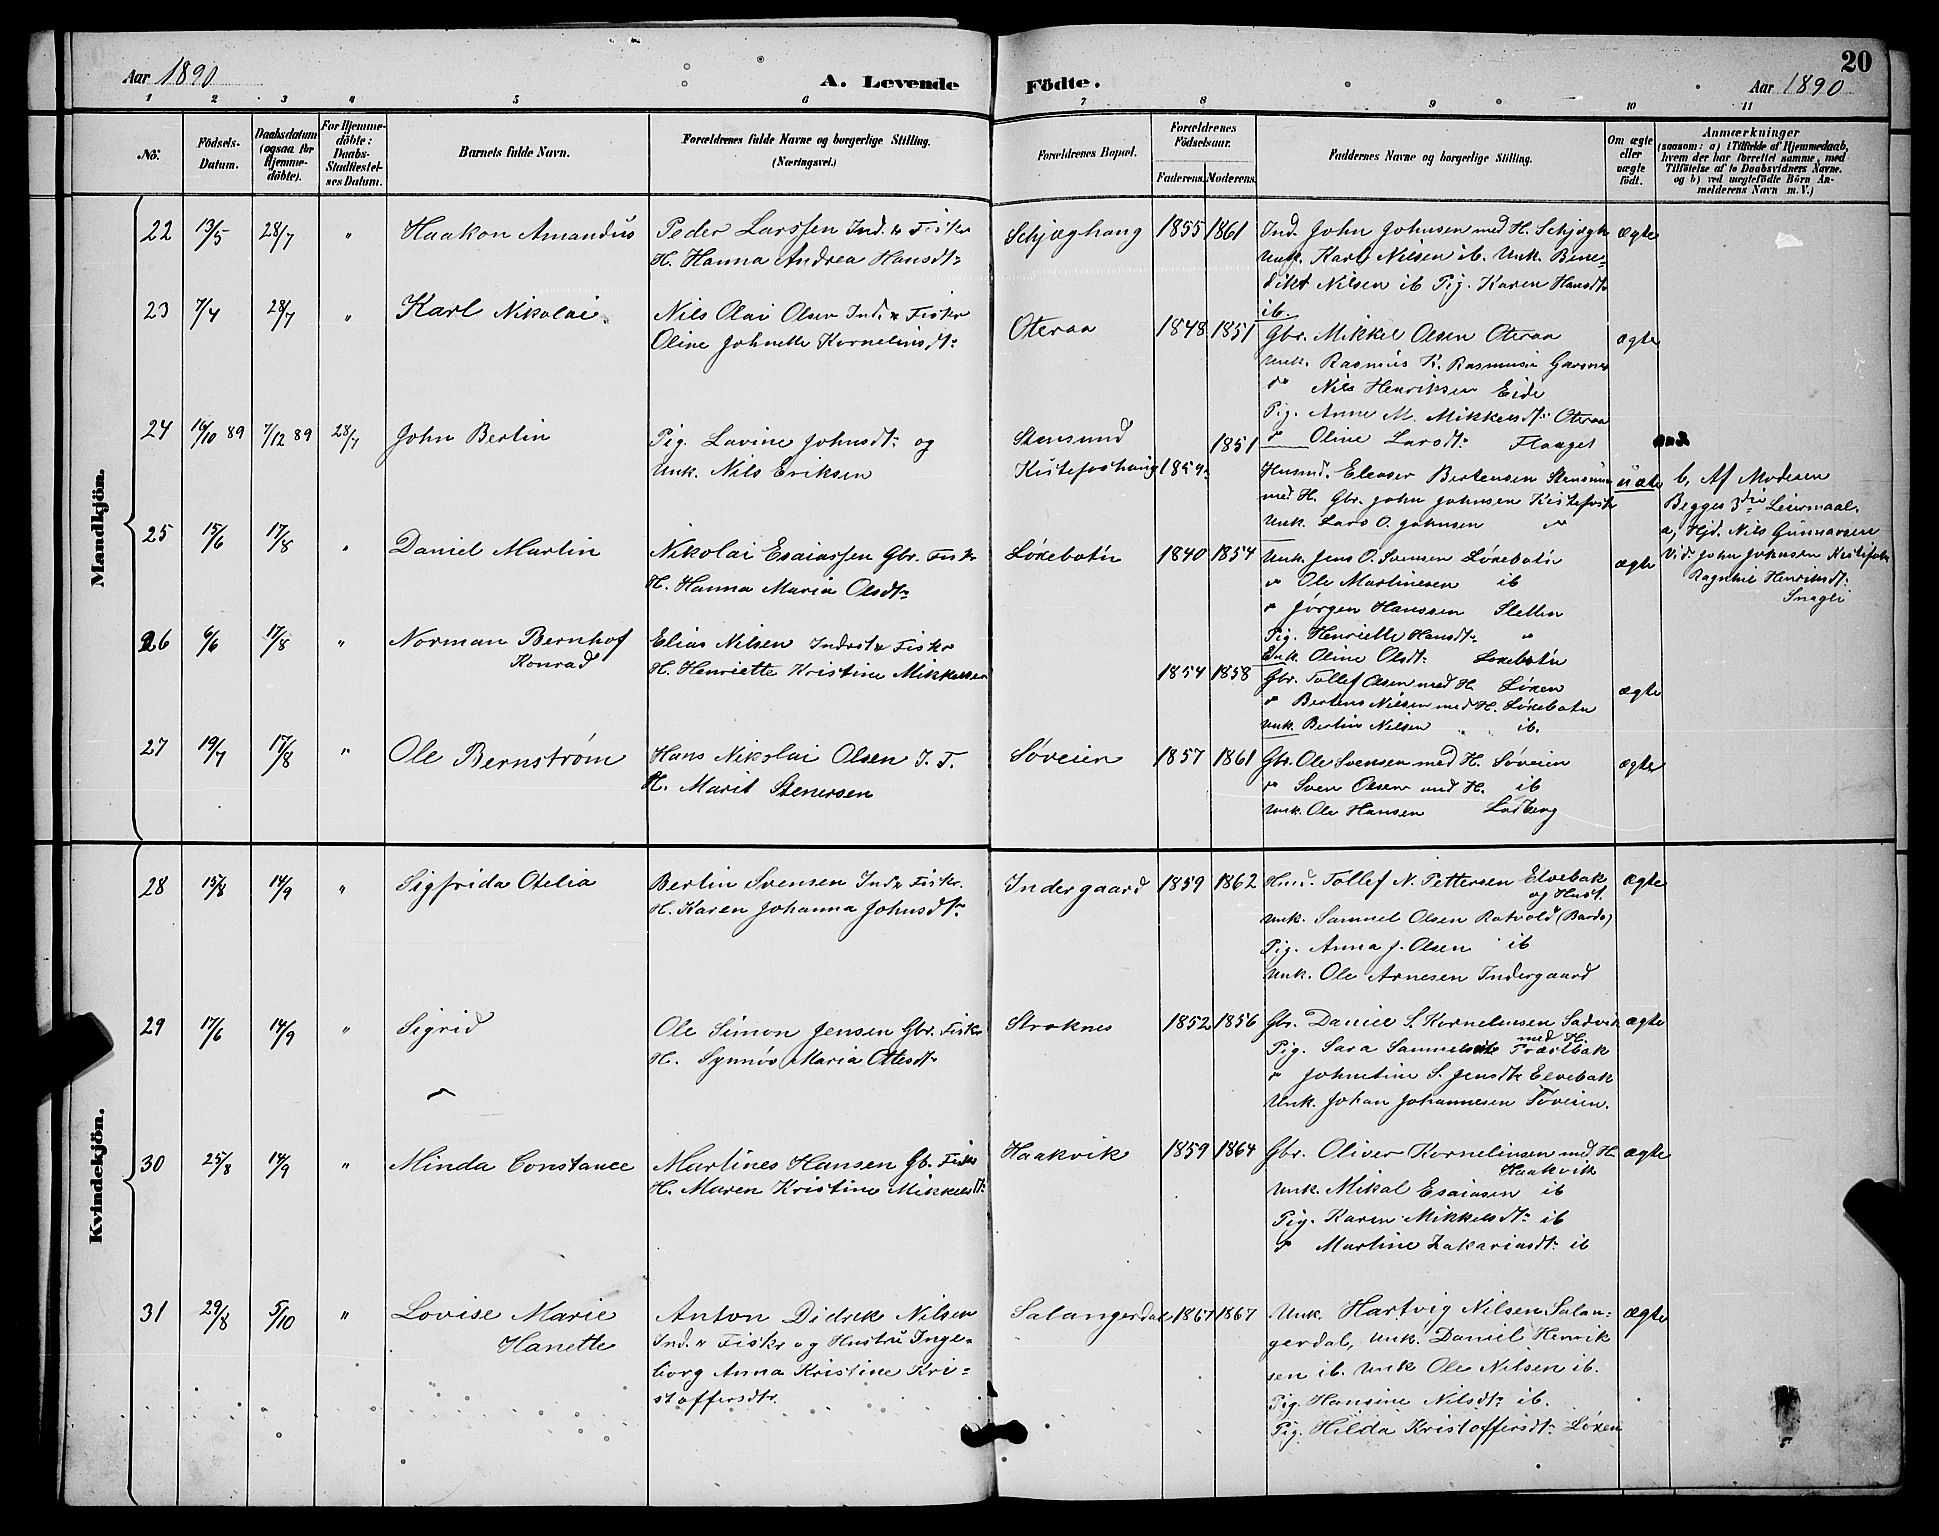 20
Aar 1890
A. Levende
Födte.
Aar 1890
1 2 3 4 5 6 7 8 9 10 11
No.
Födsels-
Datum.
Daabsdatum
(ogsaa for
Hjemme-
döbte).
For Hjemme-
döbte:
Daabs-
Stadfæstel-
ses Datum.
Barnets fulde Navn.
Forældrenes fulde Navne og borgerlige Stilling.
(Næringsvei.)
Forældrenes Bopæl.
Forældrenes
Födselsaar.
Faderens. Moderens.
Faddernes Navne og borgerlige Stilling.
Om ægte
eller
uægte
födt.
Anmærkninger
(saasom: a) i Tilfælde af Hjemmedaab,
hvem der har forrettet samme, med
Tilföielse af to Daabsvidners Navne.
og b) ved uægtefödte Börn An-
melderens Navn m. V.)
Mandkjön.
22 13/5 28/7 " Haakon Amandus
Peder Larssen Ind. & Fisker
H. Hanna Andrea Hansdtr
Schjæghaug 1855 1861
Ind. John Johnsen med H. Schjægh
Unk. Karl Nilsen ib. Unk. Bene-
dikt Nilsen ib Pig. Karen Hansdtr
ib.
ægte
23 7/4 28/7 " Karl Nikolai
Nils Olai Olsen Ind. & Fisker
Oline Johnette Kornelinsdtr
Oteraa 1848 1851
Gbr. Mikkel Olsen Oteraa
Unk. Rasmus K. Rasmussen Garsnes
do Nils Henriksen Eide
Pig. Anne M. Mikkelsdtr Oteraa
" Oline Larsdtr Flaaget
ægte
24 16/10 89 7/12 89 28/7 John Bertin
Pig. Lavine Johnsdtr og
Unk. Nils Eriksen
Stensund 1851
Kistefoshaug 1854
Husmd. Eleaser Bertensen Stensund
med H. Gbr. John Johnsen Kistefosh
Unk. Lars O. Johnsen "
uægte
b, Af Moderen
Begges 3die Leiermaal.
a, Hjd. Nils Gunnarsen
Vid. John Johnsen Kistefosh
Ragnhil Henriksdtr
Snagli
25 15/6 17/8 " Daniel Martin
Nikolai Esaiassen Gbr. Fisker
H. Hanna Maria Olsdtr
Løxebotn 1840 1854
Unk. Jens O. Svensen Løxebotn
" Ole Martinesen ib
" Jörgen Hanssen Sletten
Pig. Henriette Hansdtr "
Enk. Oline Olsdtr Løxebotn
ægte
26 6/6 17/8 " Norman Bernhof
Konrad
Elias Nilsen Inderst & Fisker
H. Henriette Kristine Mikkelsen
1854 1858
Gbr. Tollef Olsen med H. Løxen
" Bertens Nilsen med H. Løxebotn
Unk. Bertins Nilsen ib.
ægte
27 19/7 17/8 " Ole Bernstrøm
Hans Nikolai Olsen I. F.
H. Marit Stenersen
Søveien 1857 1861
Gbr. Ole Svensen med H. Søveien
" Sven Olsen med H. ib
Unk. Ole Hansen
ægte
Kvindekjön.
28 15/8 14/9 " Sigfrida Otelia
Bertin Svensen Ind & Fisker.
H. Karen Johanna Johnsdtr
Indergaard 1859 1862
Husmd. Tollef N. Pettersen Elvebak
og Hust.
Unk. Samuel Olsen Rotvold (Bardo)
Pig. Anna J. Olsen ib
Unk. Ole Arnesen Indergaard
ægte
29 17/6 14/9 " Sigrid
Ole Simon Jensen Gbr. Fisker
H. Synnöv Maria Ottesdtr
Stroknes 1852 1856
Gbr. Daniel S. Kornelinsen Sadvik
med H.
Pig. Sara Samuelsdtr Præstbak
" Johnetine S. Jensdtr Elvebak
Unk. Johan Johannesen Søveien.
ægte
30 25/8 14/9 " Minda Constance
Martines Hansen Gb. Fisker
H. Maren Kristine Mikkelsdtr
Haakvik 1859 1864
Gbr. Oliver Kornelinsen med H.
Haakvik
Unk. Mikal Esaiasen ib
Pig. Karen Mikkelsdtr ib
" Martine Zakariasdtr ib
ægte
31 29/8 5/10 " Lovise Marie
Hanette
Anton Didrek Nilsen
Ind. & Fiskr og Hustru Inge-
borg Anna Kristine Kri-
stoffersdtr.
Salangerdal 1867 1867
Unk. Hartvig Nilsen Salan-
gerdal, Unk. Daniel Henrik
sen ib. Unk Ole Nilsen ib.
Pig. Hansine Nilsdtr ib.
Pig. Hilda Kristoffersdtr Løxen
ægte